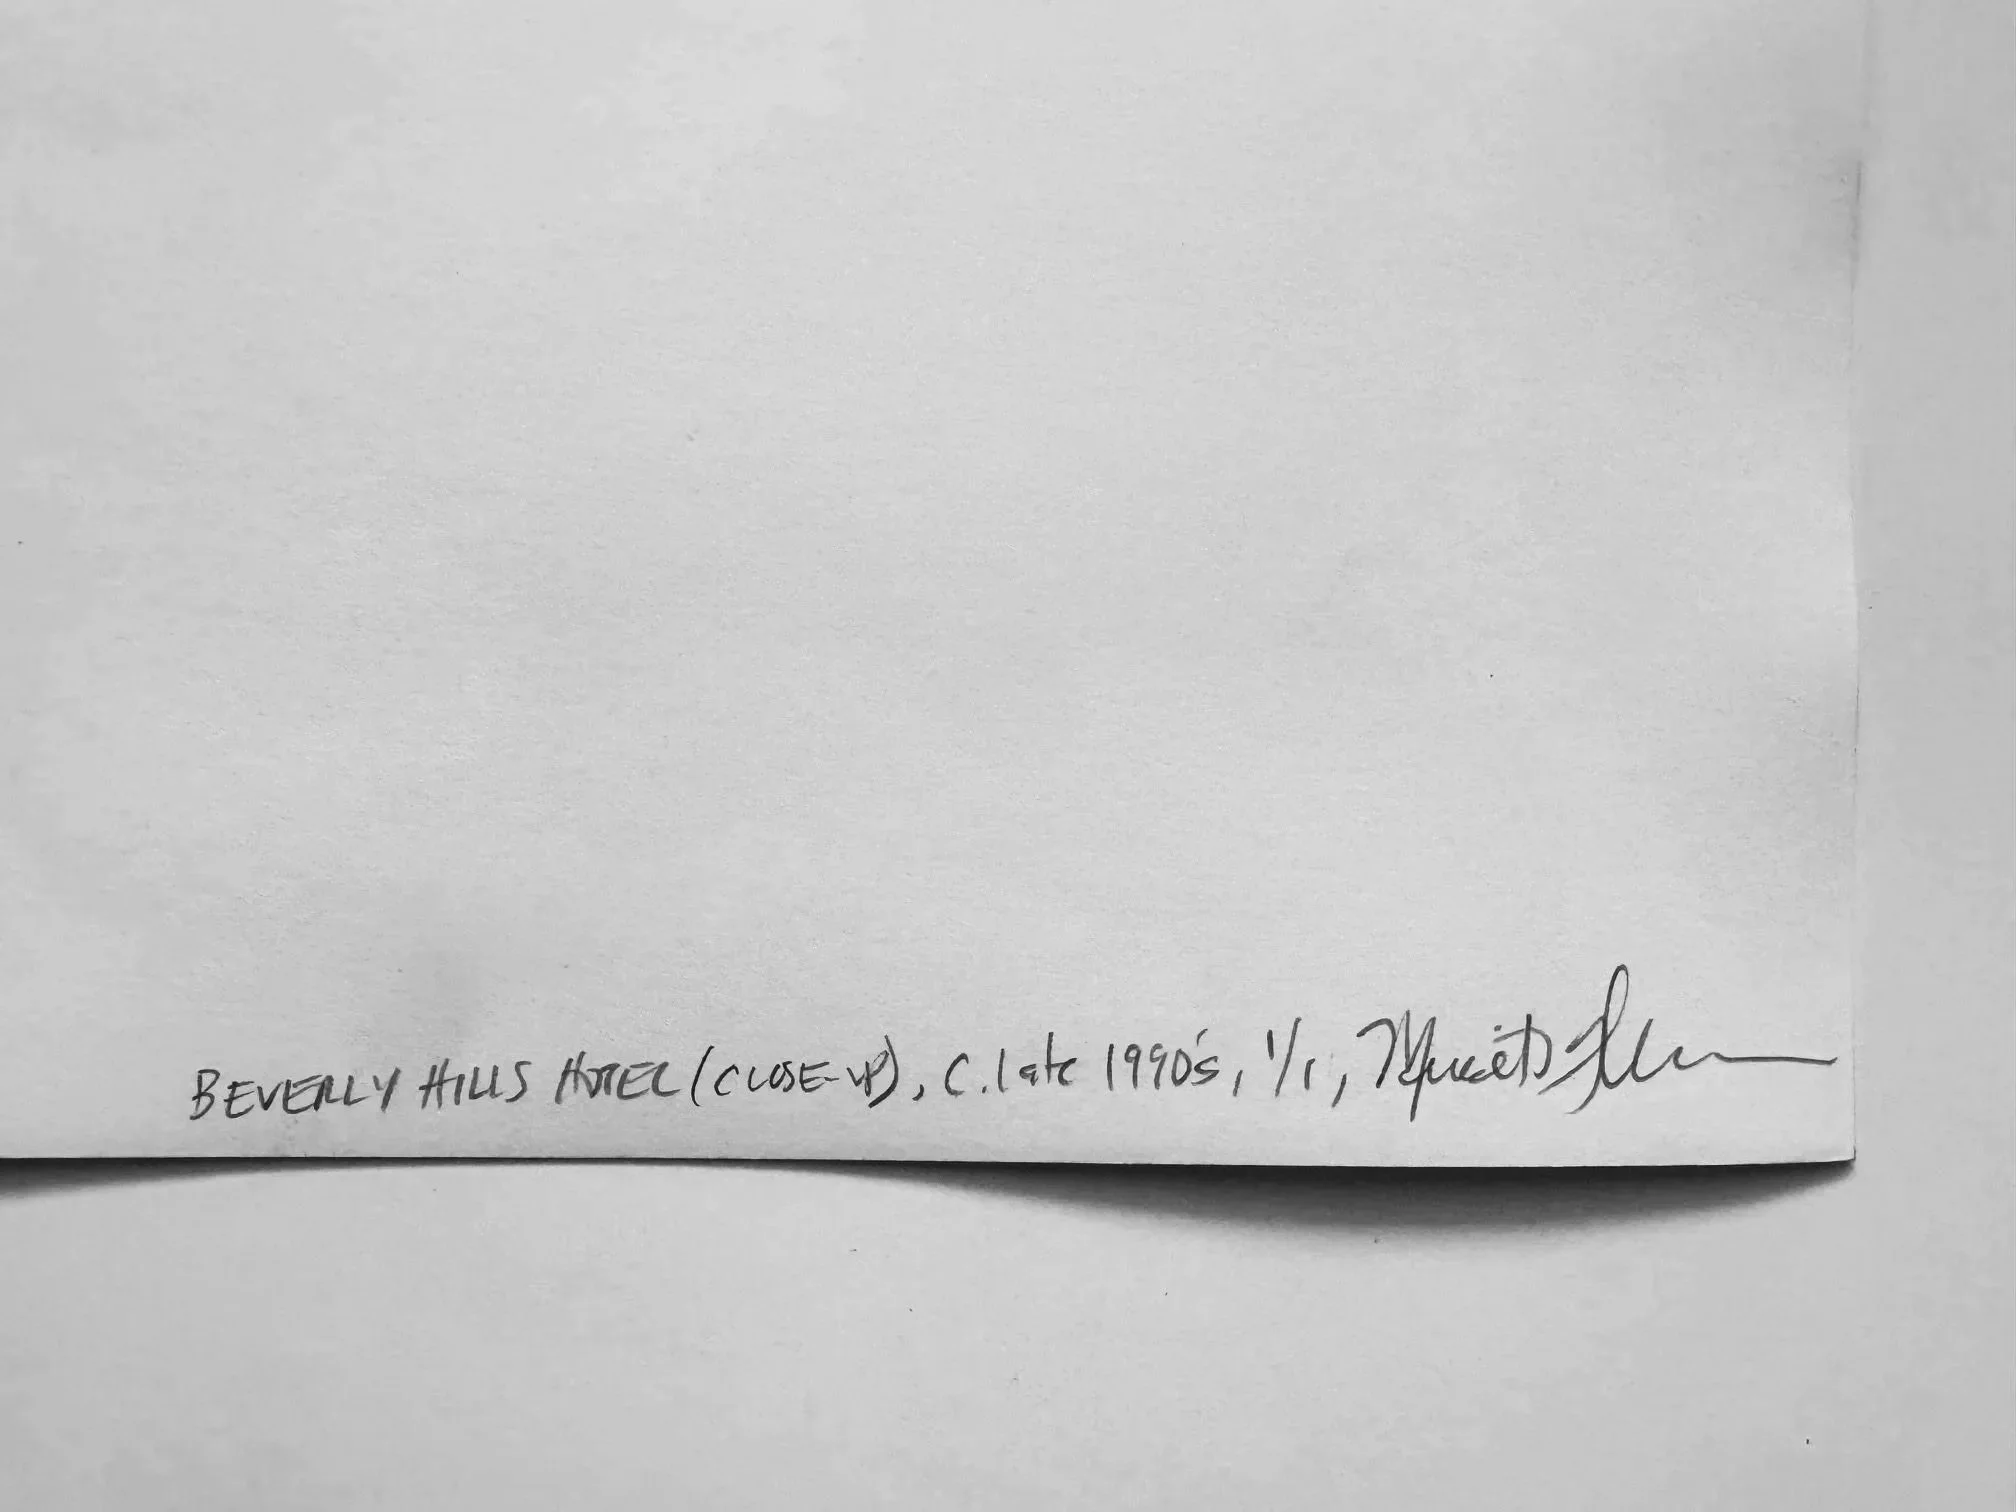 BEVERLY HILLS HOTEL (CLOSE-UP), C. late 1990's, 1/1,